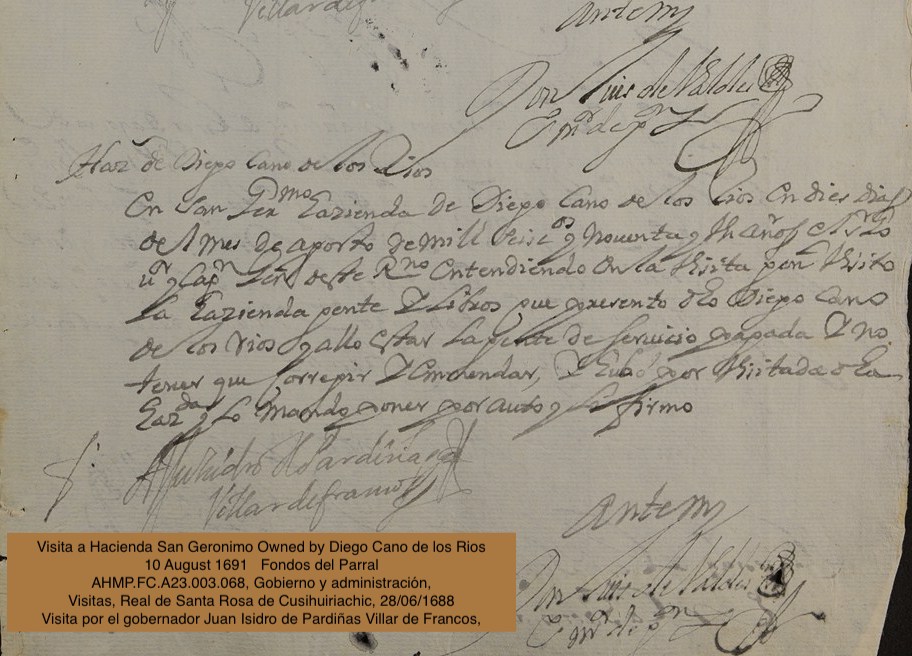 Villardefr
Antemy
Don Luis de Valdes
Hazda de Diego Cano de los Rios
En San Germo Hazienda de Diego Cano de los Rios En dies dias
del mes de agosto de mill Seiscos y Noventa y Un años el sr
y Capn Genl deste Rno Entendiendo En la Visita genl Visito
la Hazienda gente Y Libros que presento dho Diego Cano
de los Rios y allo Estar la gente de servicio pagada Y no
tener que Correxir Y Emmendar, Y Hubo por Visitada dha
Hazda y lo Mando poner por auto y lo firmo
Juo Isidro de Pardiñas
Villardefrancos
Antemy
Don Luis de Valdes
Visita a Hacienda San Geronimo Owned by Diego Cano de los Rios
10 August 1691 Fondos del Parral
AHMP.FC.A23.003.068, Gobierno y administración,
Visitas, Real de Santa Rosa de Cusihuiriachic, 28/06/1688
Visita por el gobernador Juan Isidro de Pardiñas Villar de Francos,